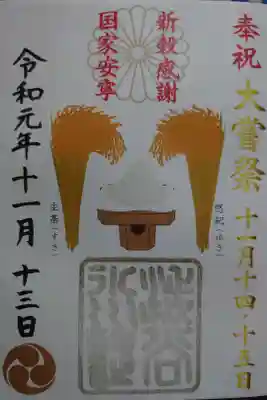 奉祝
大嘗祭
十一月十四・十五日
悠紀(ゆき)
新穀感謝
国家安寧
主基(すき)
令和元年十一月十三日